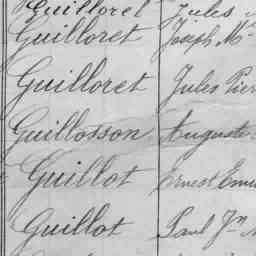 Guilloret Jules
Guilloret Joseph M
Guilloret Jules Pier
Guillosson Auguste
Guillot Ernest Emi
Guillot Paul Jn